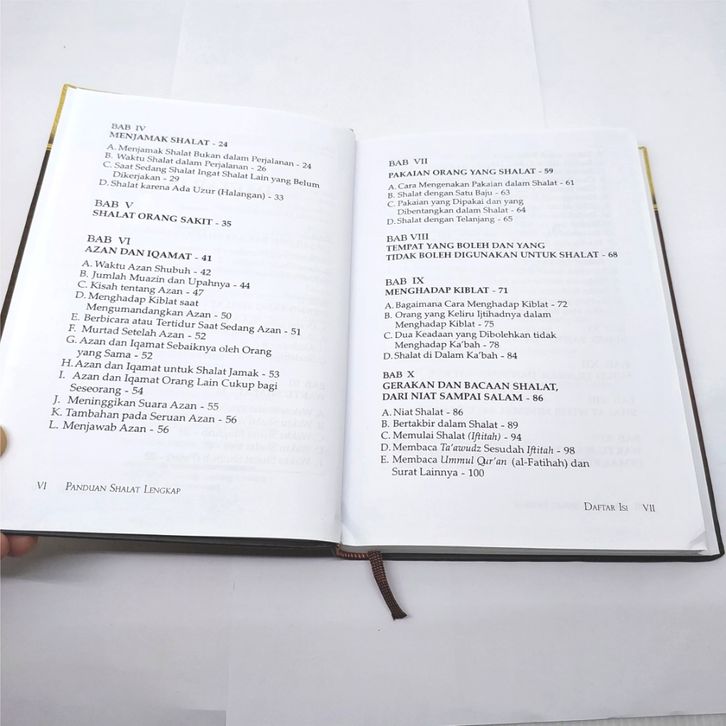 BAB IV
MENJAMAK SHALAT - 24
A. Menjamak Shalat Bukan dalam Perjalanan - 24
B. Waktu Shalat dalam Perjalanan - 26
C. Saat Sedang Shalat Ingat Shalat Lain yang Belum
Dikerjakan - 29
D. Shalat karena Ada Uzur (Halangan) - 33
BAB V
SHALAT ORANG SAKIT - 35
BAB VI
AZAN DAN IQAMAT - 41
A. Waktu Azan Shubuh - 42
B. Jumlah Muazin dan Upahnya - 44
C. Kisah tentang Azan - 47
D. Menghadap Kiblat saat
Mengumandangkan Azan - 50
E. Berbicara atau Tertidur Saat Sedang Azan - 51
F. Murtad Setelah Azan - 52
G. Azan dan Iqamat Sebaiknya oleh Orang
yang Sama - 52
H. Azan dan Iqamat untuk Shalat Jamak - 53
I. Azan dan Iqamat Orang Lain Cukup bagi
Seseorang - 54
J. Meninggikan Suara Azan - 55
K. Tambahan pada Seruan Azan - 56
L. Menjawab Azan - 56
VI PANDUAN SHALAT LENGKAP
BAB VII
PAKAIAN ORANG YANG SHALAT - 59
A. Cara Mengenakan Pakaian dalam Shalat - 61
B. Shalat dengan Satu Baju - 63
C. Pakaian yang Dipakai dan yang
Dibentangkan dalam Shalat - 64
D. Shalat dengan Telanjang - 65
BAB VIII
TEMPAT YANG BOLEH DAN YANG
TIDAK BOLEH DIGUNAKAN UNTUK SHALAT - 68
BAB IX
MENGHADAP KIBLAT - 71
A. Bagaimana Cara Menghadap Kiblat - 72
B. Orang yang Keliru Ijtihadnya dalam
Menghadap Kiblat - 75
C. Dua Keadaan yang Dibolehkan tidak
Menghadap Ka'bah - 78
D. Shalat di Dalam Ka'bah - 84
BAB X
GERAKAN DAN BACAAN SHALAT,
DARI NIAT SAMPAI SALAM - 86
A. Niat Shalat - 86
B. Bertakbir dalam Shalat - 89
C. Memulai Shalat (Iftitah) - 94
D. Membaca Ta'awudz Sesudah Iftitah - 98
E. Membaca Ummul Qur'an (al-Fatihah) dan
Surat Lainnya - 100
DAFTAR ISI VII